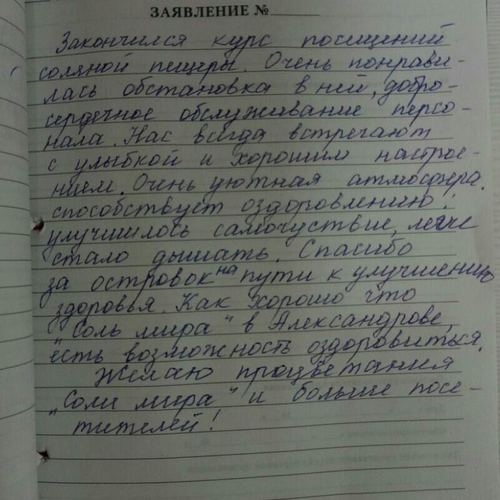 ЗАЯВЛЕНИЕ №
Закончился курс посещений
соляной пещеры. Очень понрави-
лась обстановка в ней, добро-
сердечное обслуживание персо-
нала. Нас всегда встречают
с улыбкой и хорошим настрое-
нием. Очень уютная атмосфера.
способствует оздоровлению!
улучшилось самочуствие, легче
стало дышать. Спасибо
за островок на пути к улучшению
здоровья. Как хорошо что
"Соль мира" в Александрове,
есть возможность оздоровиться.
Желаю процветания
"Соли мира" и больше посе-
тителей!